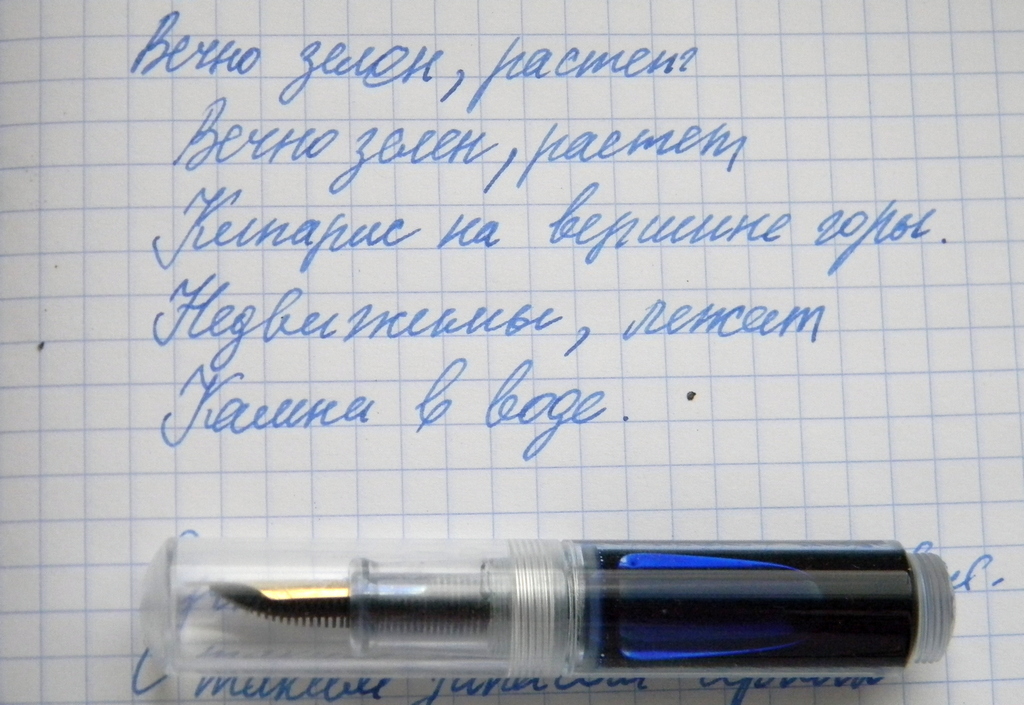 Вечно зелен, растет
Вечно зелен, растет
Кипарис на вершине горы.
Недвижимы, лежат
Камни в воде.
С таким